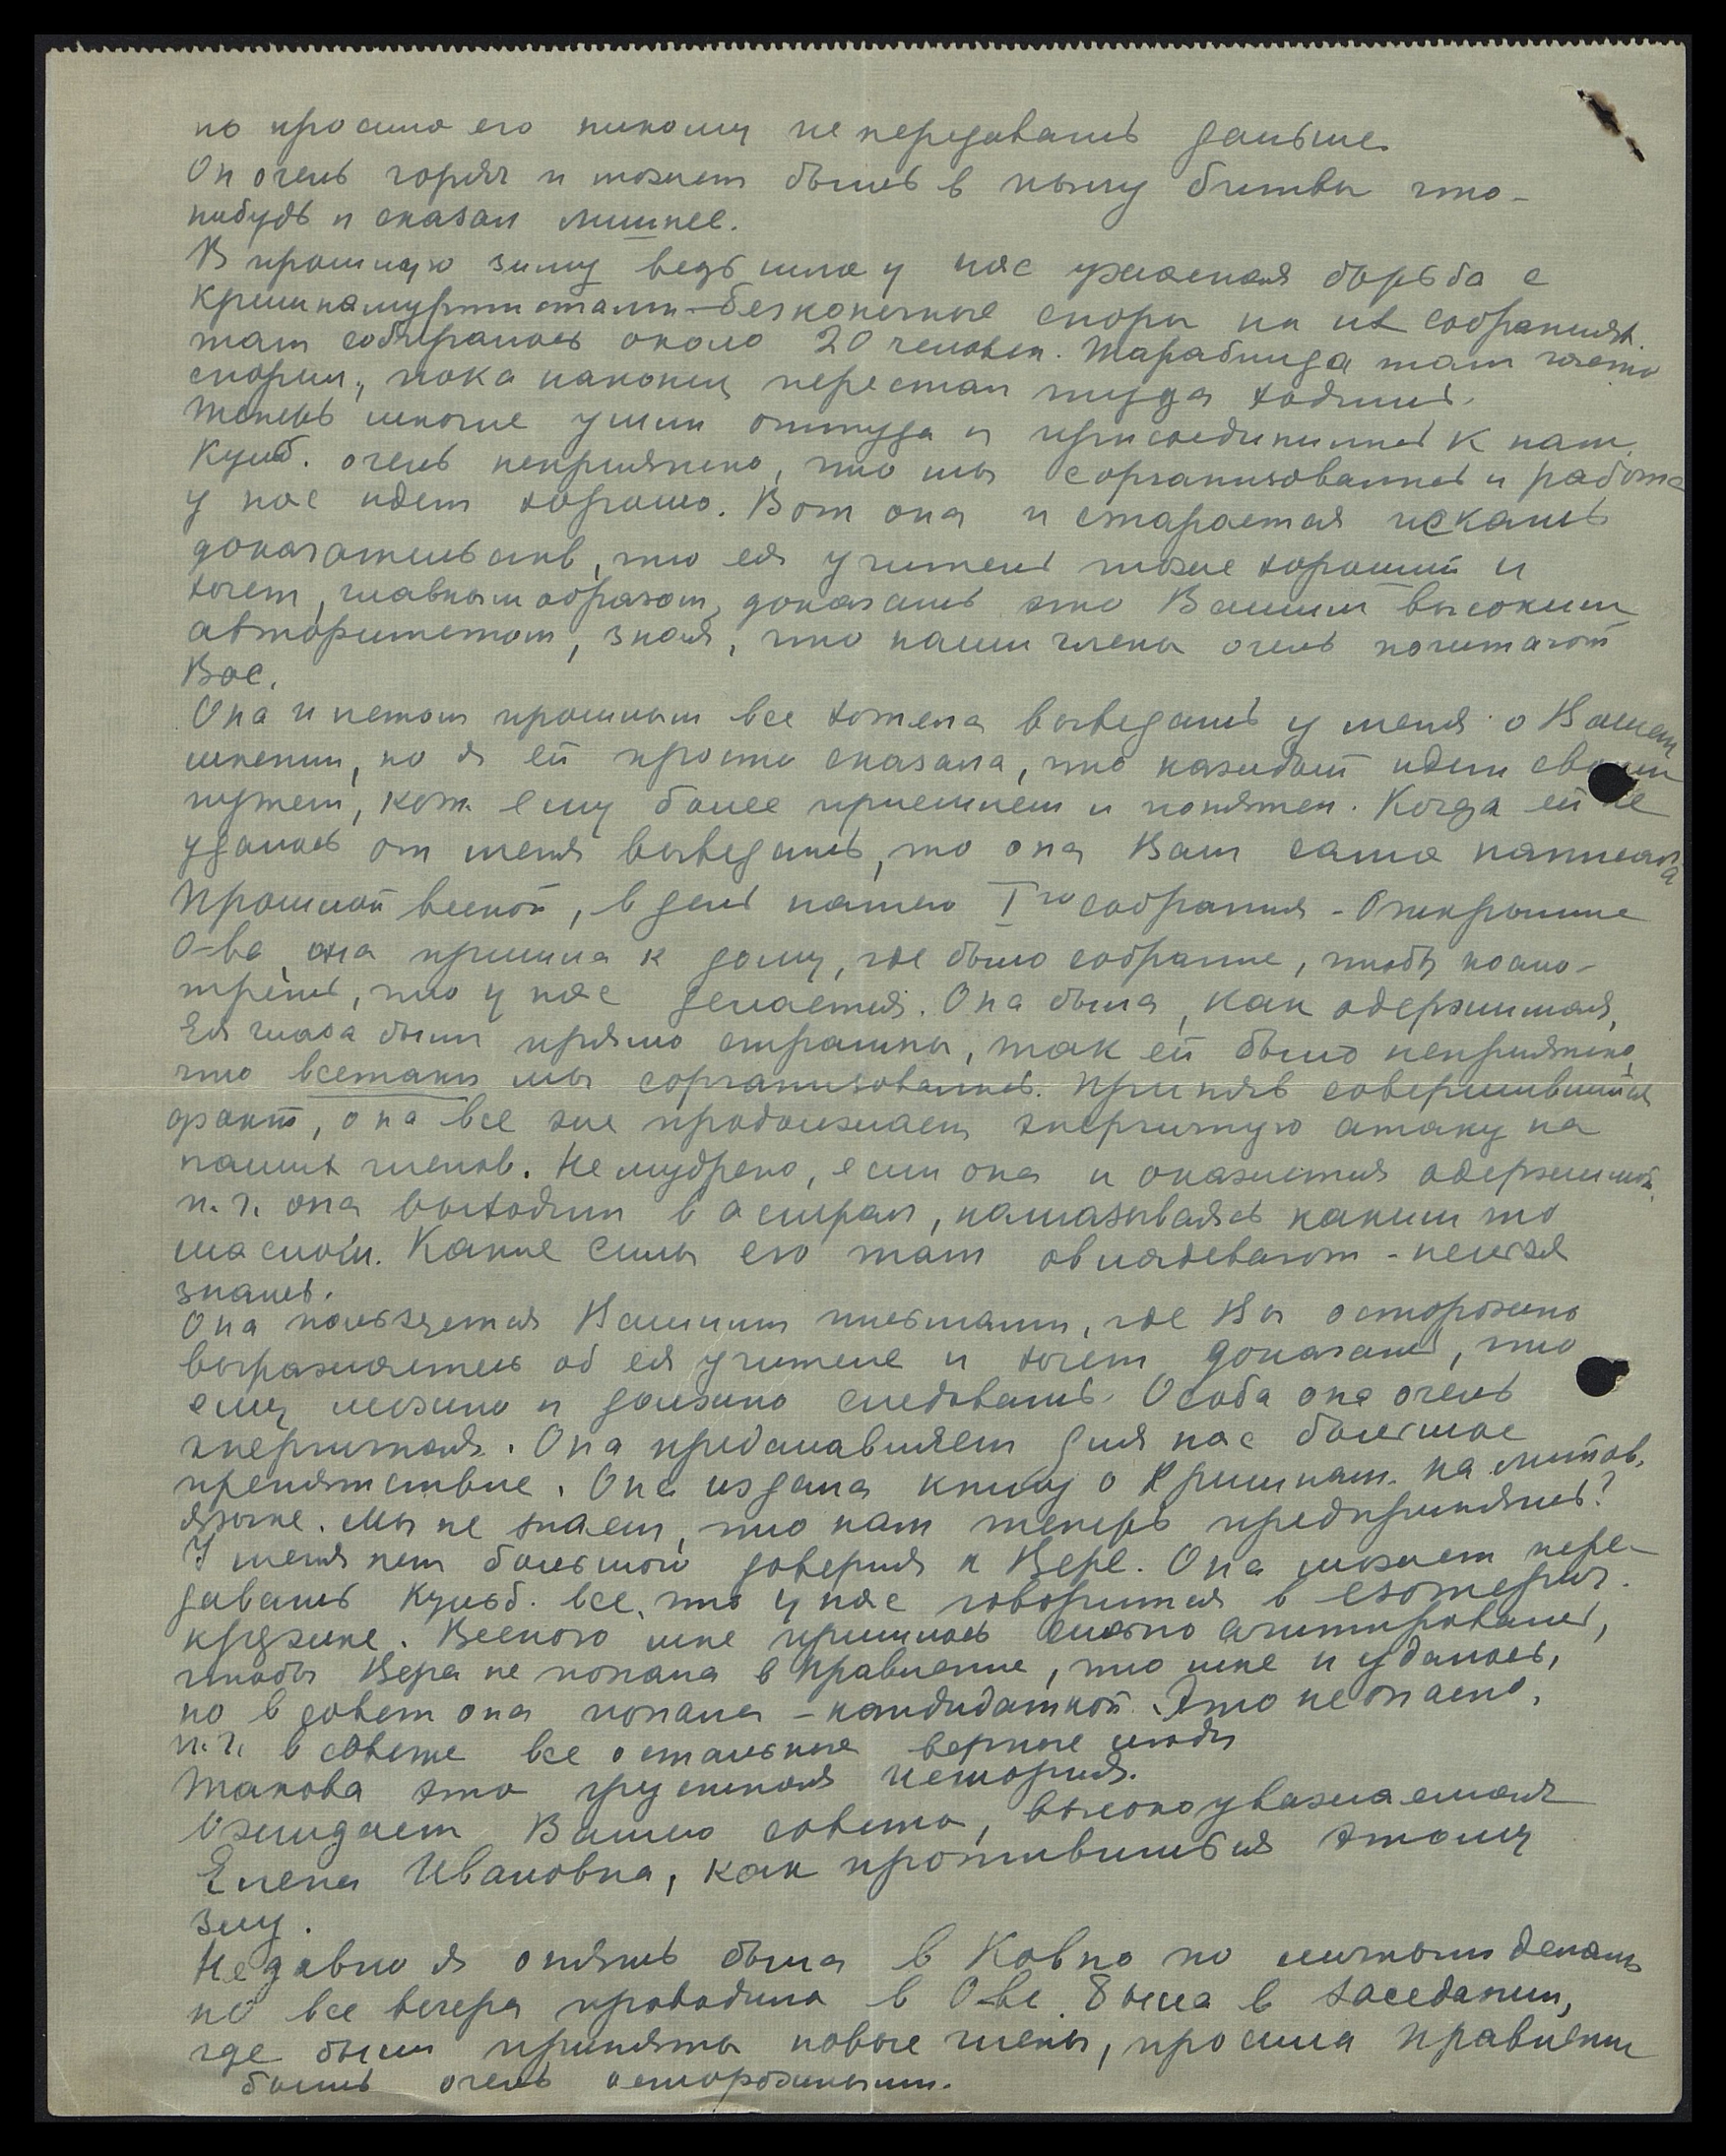 но просила его никому не передавать дальше.
Он очень горяч и может быть в пылу битвы что-
нибудь и сказал лишнее.
В прошлую зиму ведь шла у нас ужасная борьба с
Кришнамуртистами – безконечные споры на их собраниях.
там собиралось около 20 человек. Тарабильда там часто
спорил, пока наконец перестал туда ходить.
Теперь многие ушли оттуда и присоединились к нам.
Кульб. очень неприятно, что мы сорганизовались и работа
у нас идет хорошо. Вот она и старается искать
доказательств, что ея учитель тоже хороший и
хочет, главным образом, доказать это Вашим высоким
авторитетом, зная, что наши члены очень почитают
Вас.
Она и летом прошлым все хотела выведать у меня о Вашем
мнении, но я ей просто сказала, что каждый идет своим
путем, кот. ему более приемлем и понятен. Когда ей не
удалось от меня выведать, то она Вам сама написала
Прошлой весной, в день нашего I го собрания – Открытие
О-ва, она пришла к дому, где было собрание, чтобы посмо-
треть, что у нас делается. Она была, как одержимая,
Ея глаза были прямо страшны, так ей было неприятно,
что всетаки мы сорганизовались. Приняв совершившийся
факт, она все же продолжает энергичную атаку на
наших членов. Не мудрено, если она и окажется одержимой,
п.ч. она выходит в астрал, намазываясь каким то
маслом. Какие силы ею там овладевают – нельзя
знать.
Она пользуется Вашими письмами, где Вы осторожно
выражаетесь об ея учителе и хочет доказать, что
ему можно и должно следовать. Особа она очень
энергичная. Она представляет для нас большое
препятствие. Она издала книгу о Кришнам. на литов.
языке. Мы не знаем, что нам теперь предпринять?
У меня нет большой доверия к Вере. Она может пере-
давать Кульб. все, что у нас говорится в езотерич.
кружке. Весною мне пришлось сильно агитировать,
чтобы Вера не попала в Правление, что мне и удалось,
но в совет она попала – кандидаткой. Это не опасно,
п.ч. в совете все остальные верные люди
Такова эта грустная история.
Ожидаем Вашего совета, высокоуважаемая
Елена Ивановна, как противиться этому
злу.
Недавно я опять была в Ковно по личным делам
но все вечера проводила в О-ве. Была в заседании,
где были приняты новые члены, просила Правление
быть очень осторожными.